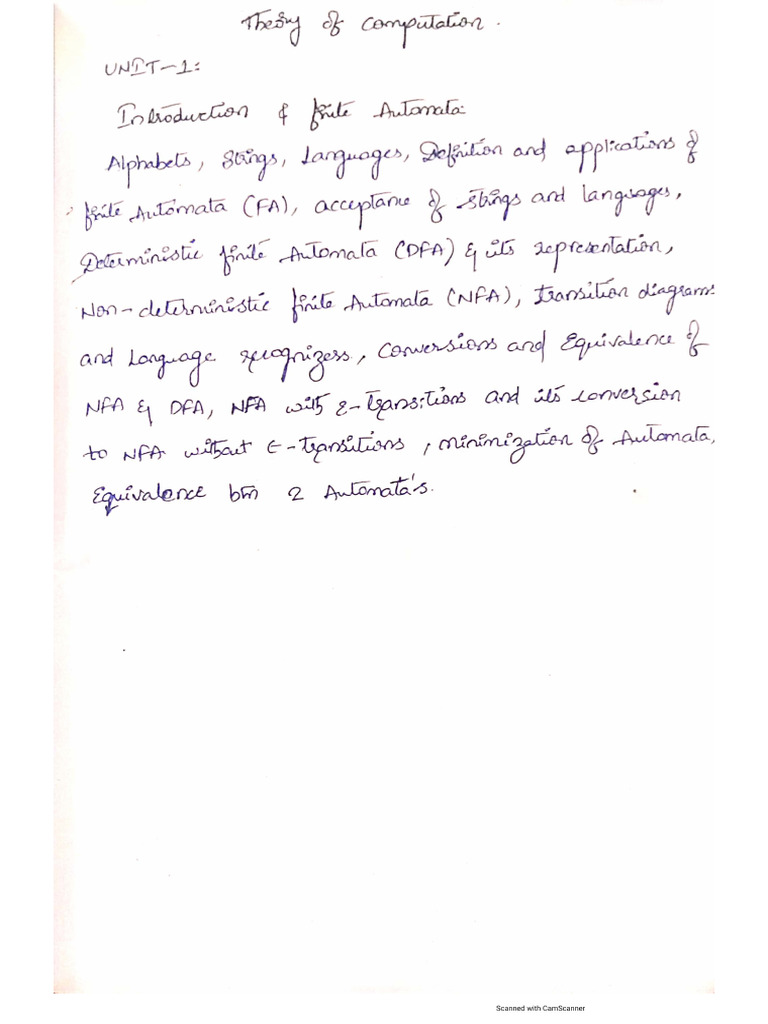 Theory of Computation.
UNIT-1:
Introduction & finite Automata:
Alphabets, Strings, Languages, Definition and applications of
finite Automata (FA), acceptance of strings and languages,
Deterministic finite Automata (DFA) & its representation,
Non-deterministic finite Automata (NFA), transition diagrams
and Language recognizers, Conversions and Equivalence of
NFA & DFA, NFA with ε-transitions and its conversion
to NFA without ε-transitions, minimization of Automata,
Equivalence btn 2 Automata's.
Scanned with CamScanner